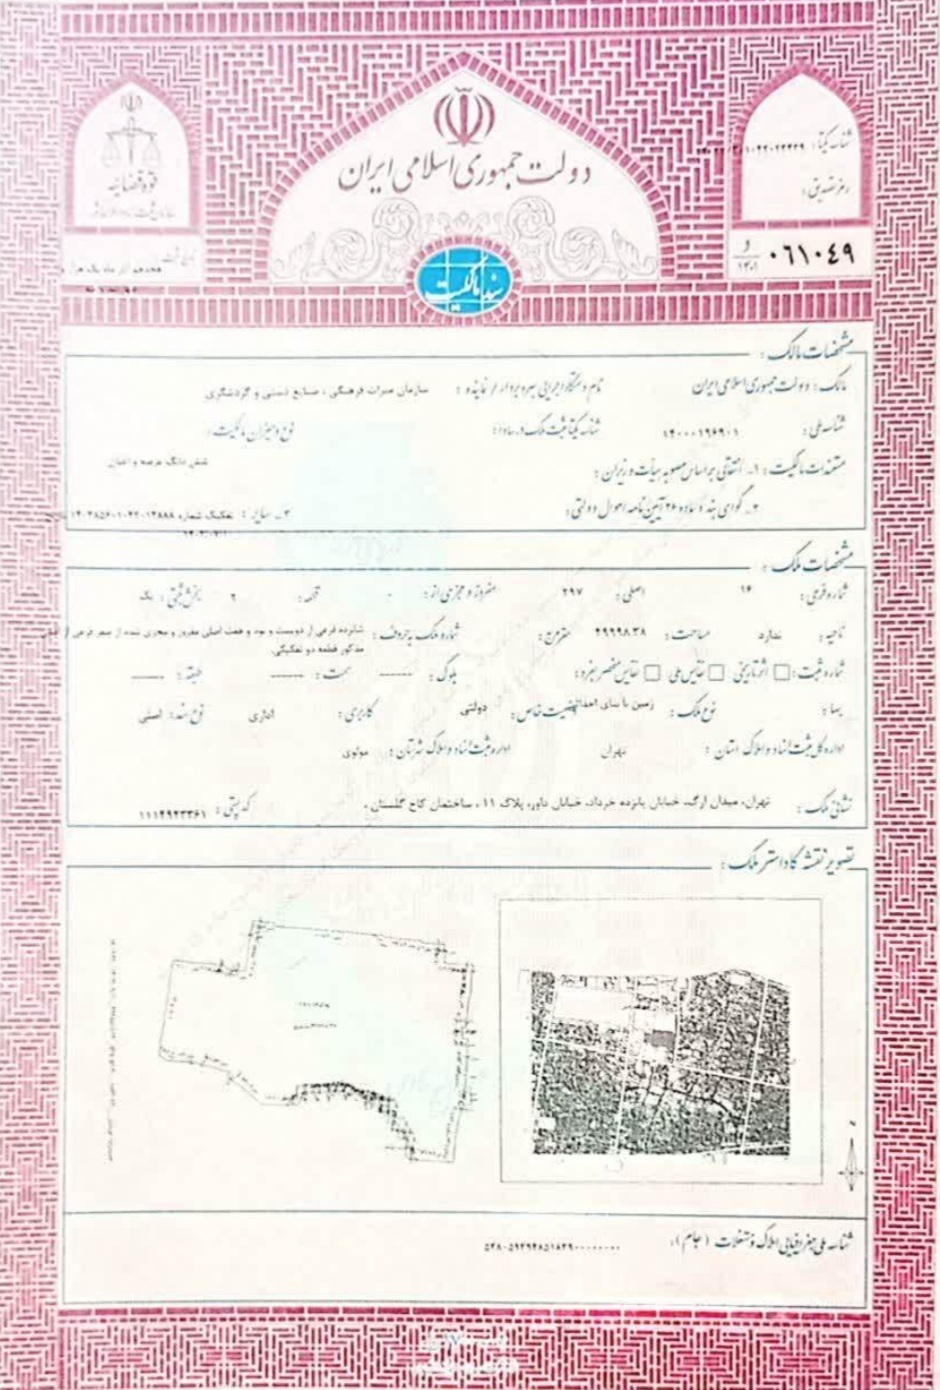 دولت جمهوری اسلامی ایران
قوه قضائیه
شناسه یکتا:
رمز تصدیق:
و
۱۴۰۱
۰۶۱۰۴۹
سند مالکیت
مشخصات مالک:
مالک: دولت جمهوری اسلامی ایران نام دستگاه اجرایی بهره بردار / نماینده: سازمان میراث فرهنگی، صنایع دستی و گردشگری
شناسه ملی: ۱۴۰۰۰۱۹۶۹۰۱ شناسه یکتا ثبت ملک در سادا: نوع و میزان مالکیت:
شش دانگ عرصه و اعیان
مستندات مالکیت: ۱- انتقالی براساس مصوبه هیأت وزیران:
۲- گواهی بند د ماده ۲۶ آیین نامه اموال دولتی: ۳- سایر: تفکیک شماره
مشخصات ملک:
شماره فرعی: ۱۶ اصلی: ۲۹۷ مفروز و مجزی از: ۰ قطعه: ۲ بخش ثبتی: یک
ناحیه: ندارد مساحت: ۲۹۹۹۸.۳۸ مترمربع: شماره ملک به حروف: شانزده فرعی از دویست و نود و هفت اصلی مفروز و مجزی شده از صفر فرعی از اصلی
مذکور قطعه دو تفکیکی.
شماره ثبت: اثر تاریخی نفایس ملی نفایس منحصر بفرد: بلوک: ------ سمت: ------ طبقه: ------
بهاء: نوع ملک: زمین با بنای احداثی وضعیت خاص: دولتی کاربری: اداری نوع سند: اصلی
اداره کل ثبت اسناد و املاک استان: تهران اداره ثبت اسناد و املاک شهرستان: مولوی
نشانی ملک: تهران، میدان ارگ، خیابان پانزده خرداد، خیابان داور، پلاک ۱۱، ساختمان کاخ گلستان. کد پستی: ۱۱۱۴۹۴۳۳۶۱
تصویر نقشه کاداستر ملک:
شناسه ملی جغرافیایی املاک و مستغلات (جام):